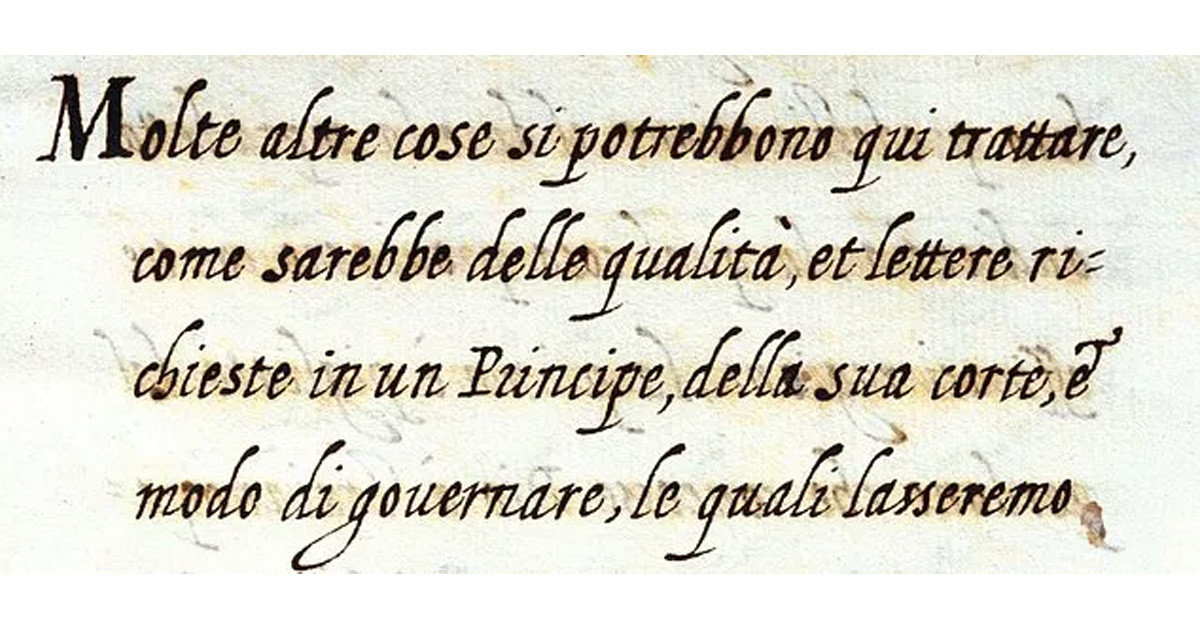 Molte altre cose si potrebbono qui trattare,
come sarebbe delle qualità, et lettere ri=
chieste in un Principe, della sua corte, et
modo di gouernare, le quali lasseremo